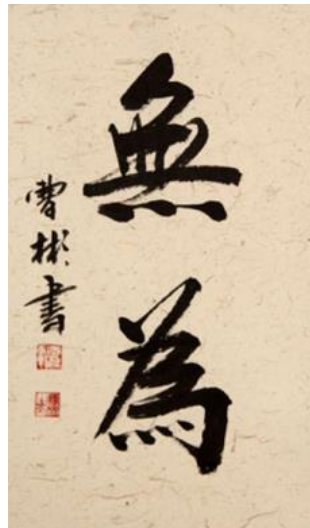 無為
曹彬書